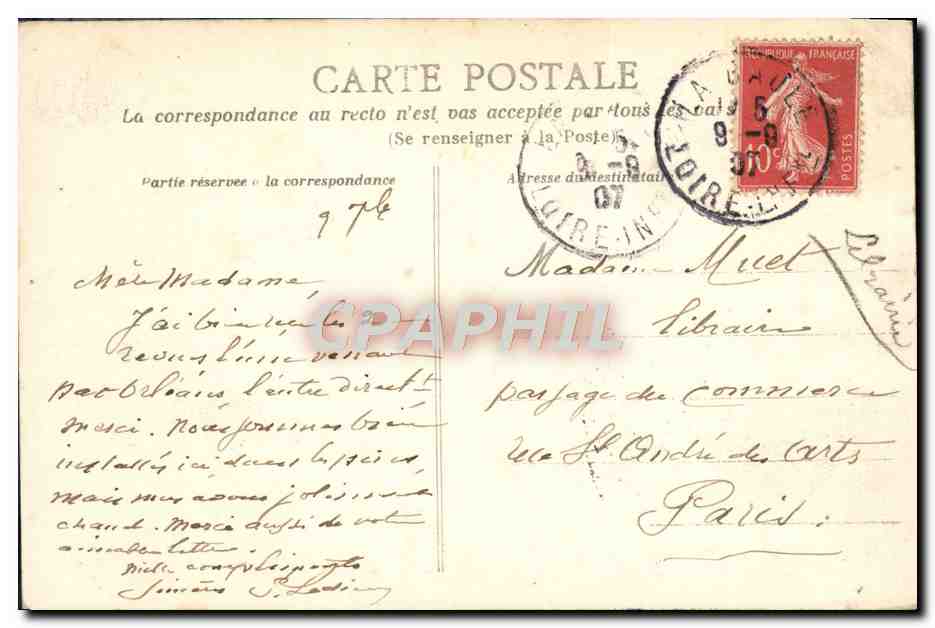 CARTE POSTALE
La correspondance au recto n'est pas acceptée par tous les
(Se renseigner à la Poste)
Partie réservée à la correspondance
Adresse du destinataire
REPUBLIQUE FRANÇAISE
10c
POSTES
LA BAULE
19 5
9 -9
07
LOIRE-INFRE
5
9 -9
07
LOIRE-INF
9 7bre
Chère Madame,
J'ai bien reçu les 2
revues l'une venant
par Orléans, l'autre direct-t
merci. Nous sommes bien
installés ici dans les pins,
mais nous avons joliment
chaud. Merci aussi de votre
aimable lettre.
Mille compliments
sincères
Madame Muet
libraire
passage du commerce
rue St André des arts
Paris.
Librairie
CPAPHIL